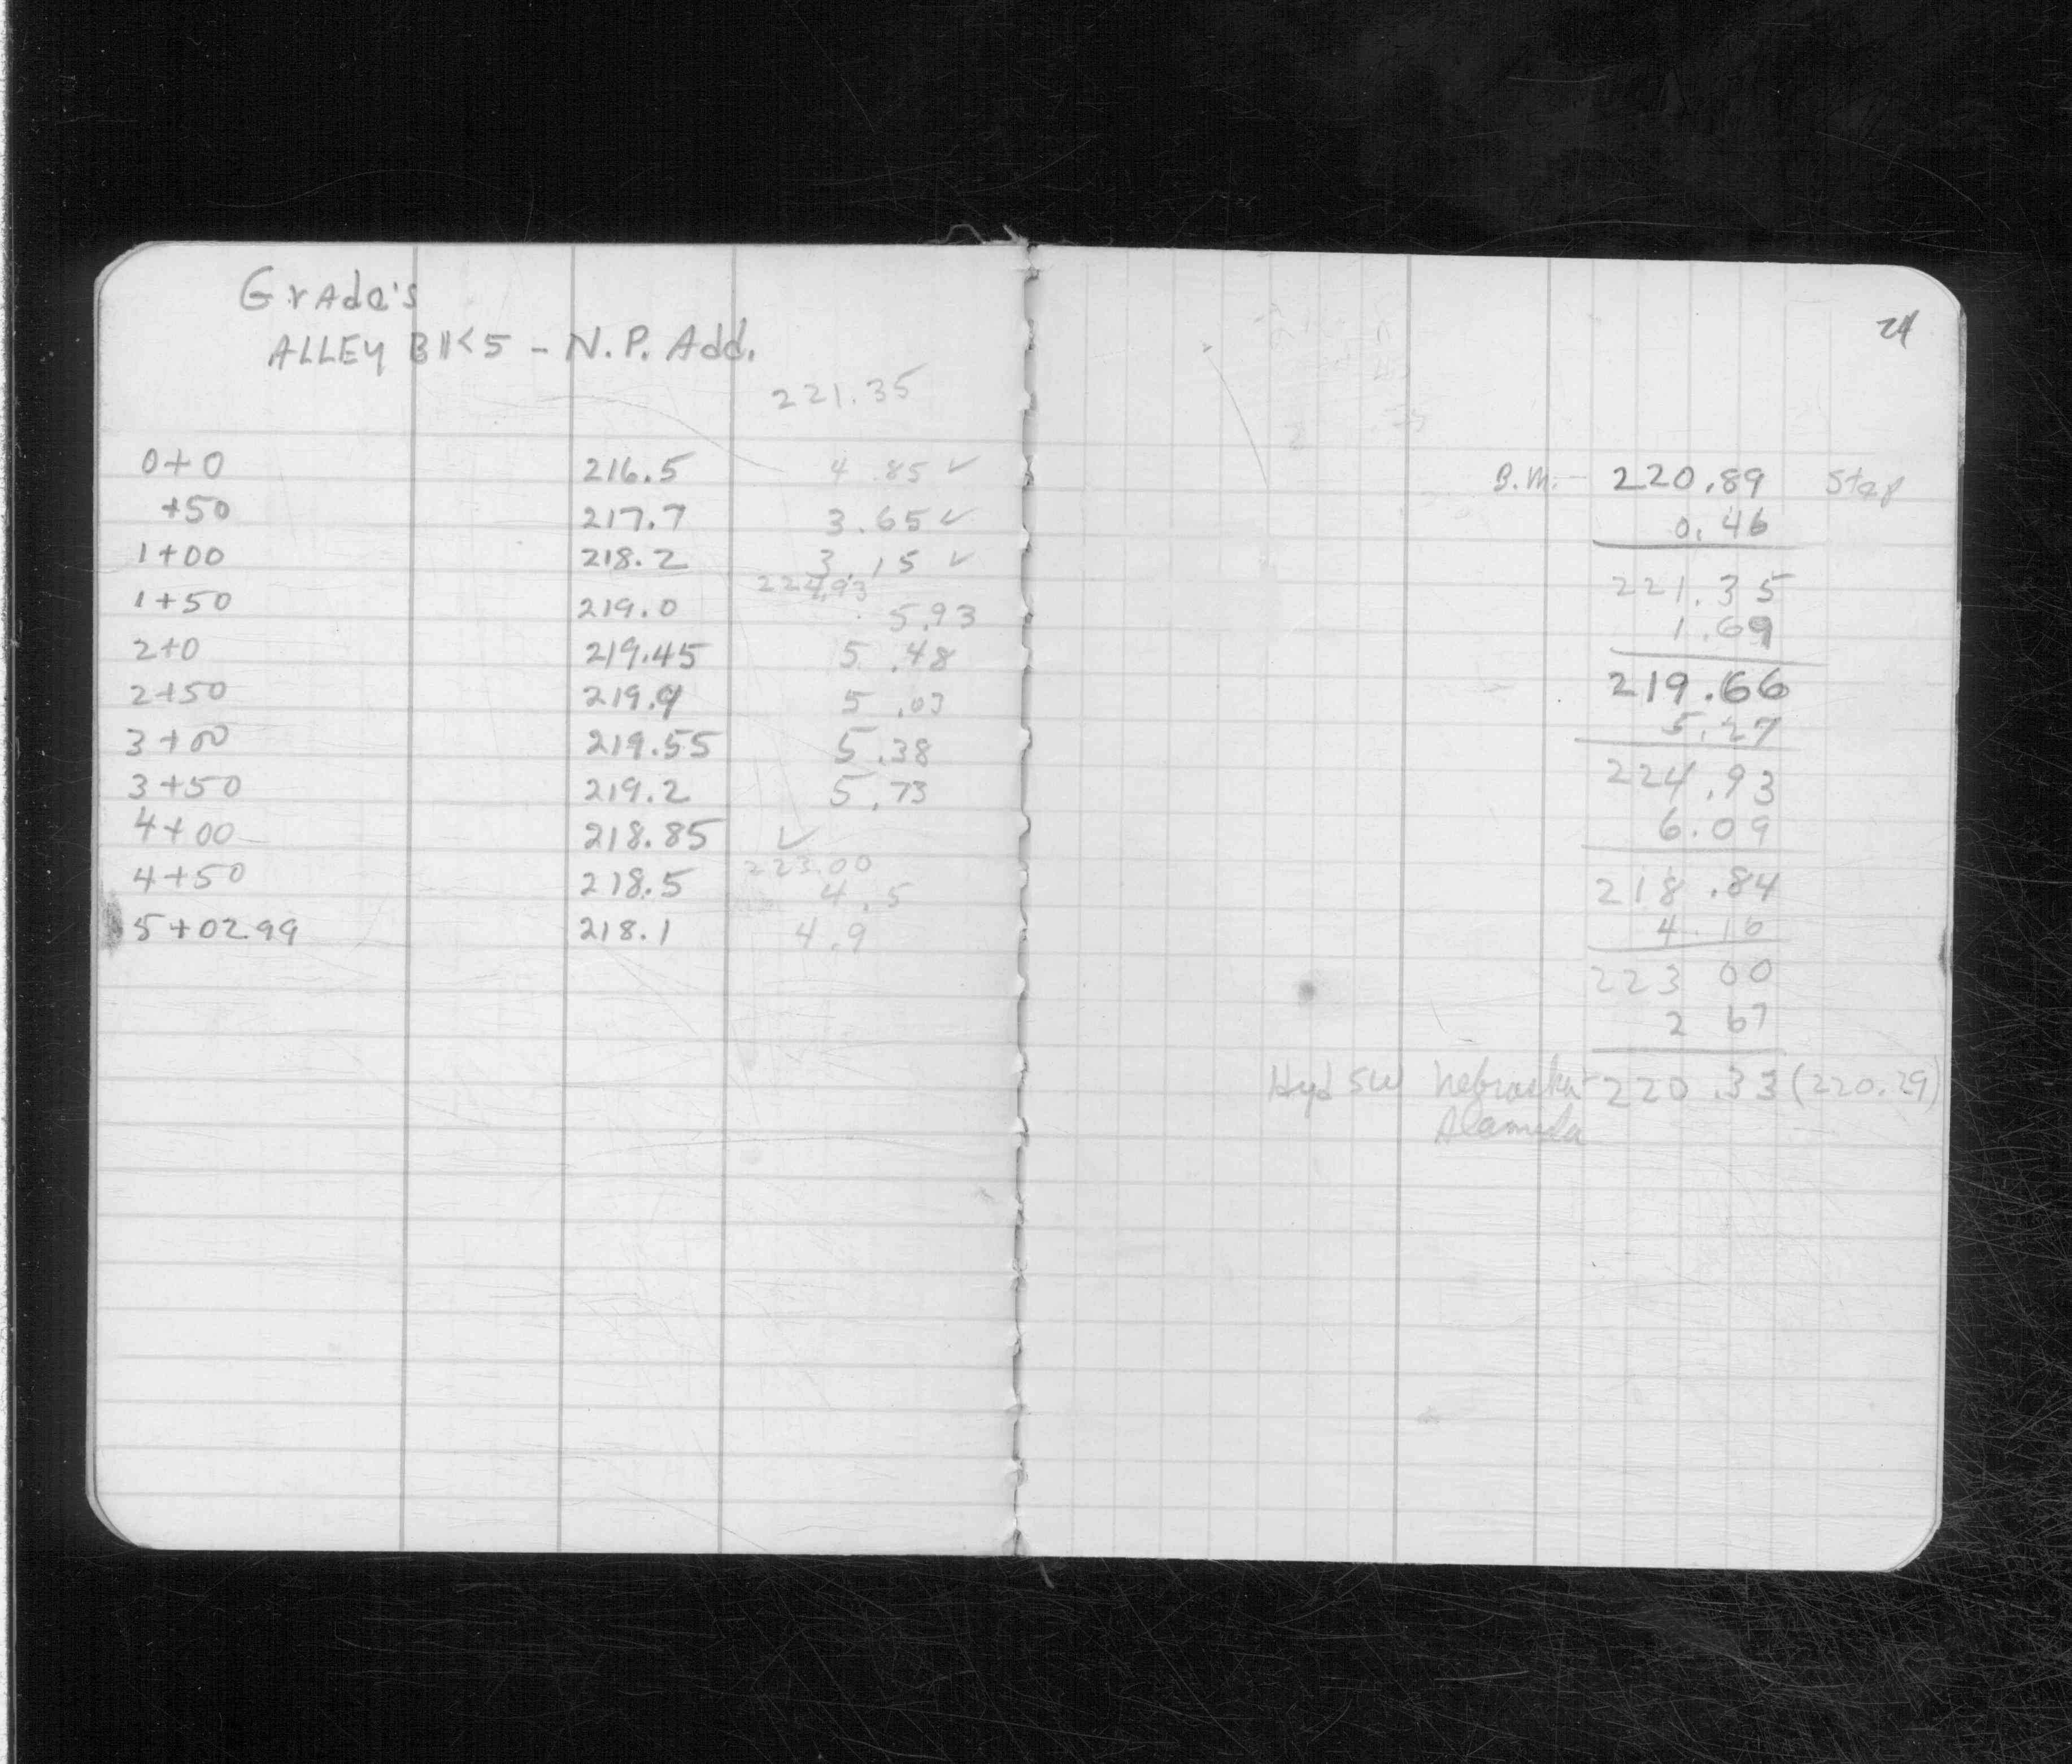 Grade's
ALLEY Blk 5 - N.P. Add.
221.35
0+0 216.5 4.85 ✓
+50 217.7 3.65 ✓
1+00 218.2 3.15 ✓
224.93
1+50 219.0 5.93
2+0 219.45 5.48
2+50 219.9 5.03
3+00 219.55 5.38
3+50 219.2 5.73
4+00 218.85 ✓
223.00
4+50 218.5 4.5
5+02.99 218.1 4.9
B.M. - 220.89 Step
0.46
221.35
1.69
219.66
5.27
224.93
6.09
218.84
4.16
223 00
2 67
Hyd SW Nebraska 220.33 (220.29)
Alameda